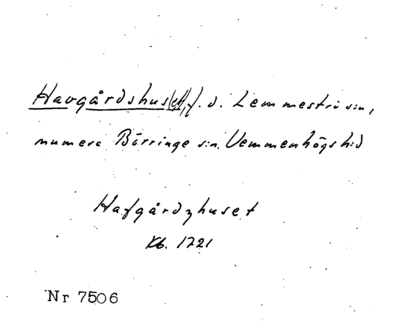 Havgårdshus(et), f. d. Lemmeströ sn,
numera Börringe sn. Vemmenhögs hd
Hafgårdzhuset
Kb. 1721
Nr 7506